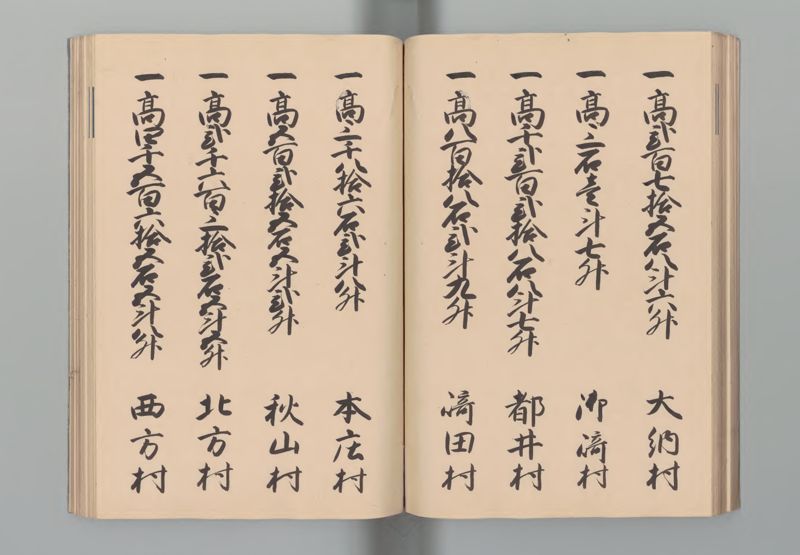 一高弐百七拾五石八斗六升 大納村
一高三石壱斗七升 御﨑村
一高千弐百弐拾八石八斗七升 都井村
一高八百拾八石弐斗九升 﨑田村
一高三千八拾六石弐斗八升 本庄村
一高五百弐拾五石五斗弐升 秋山村
一高弐千六百三拾弐石五斗五升 北方村
一高四千五百六拾五石五斗八升 西方村